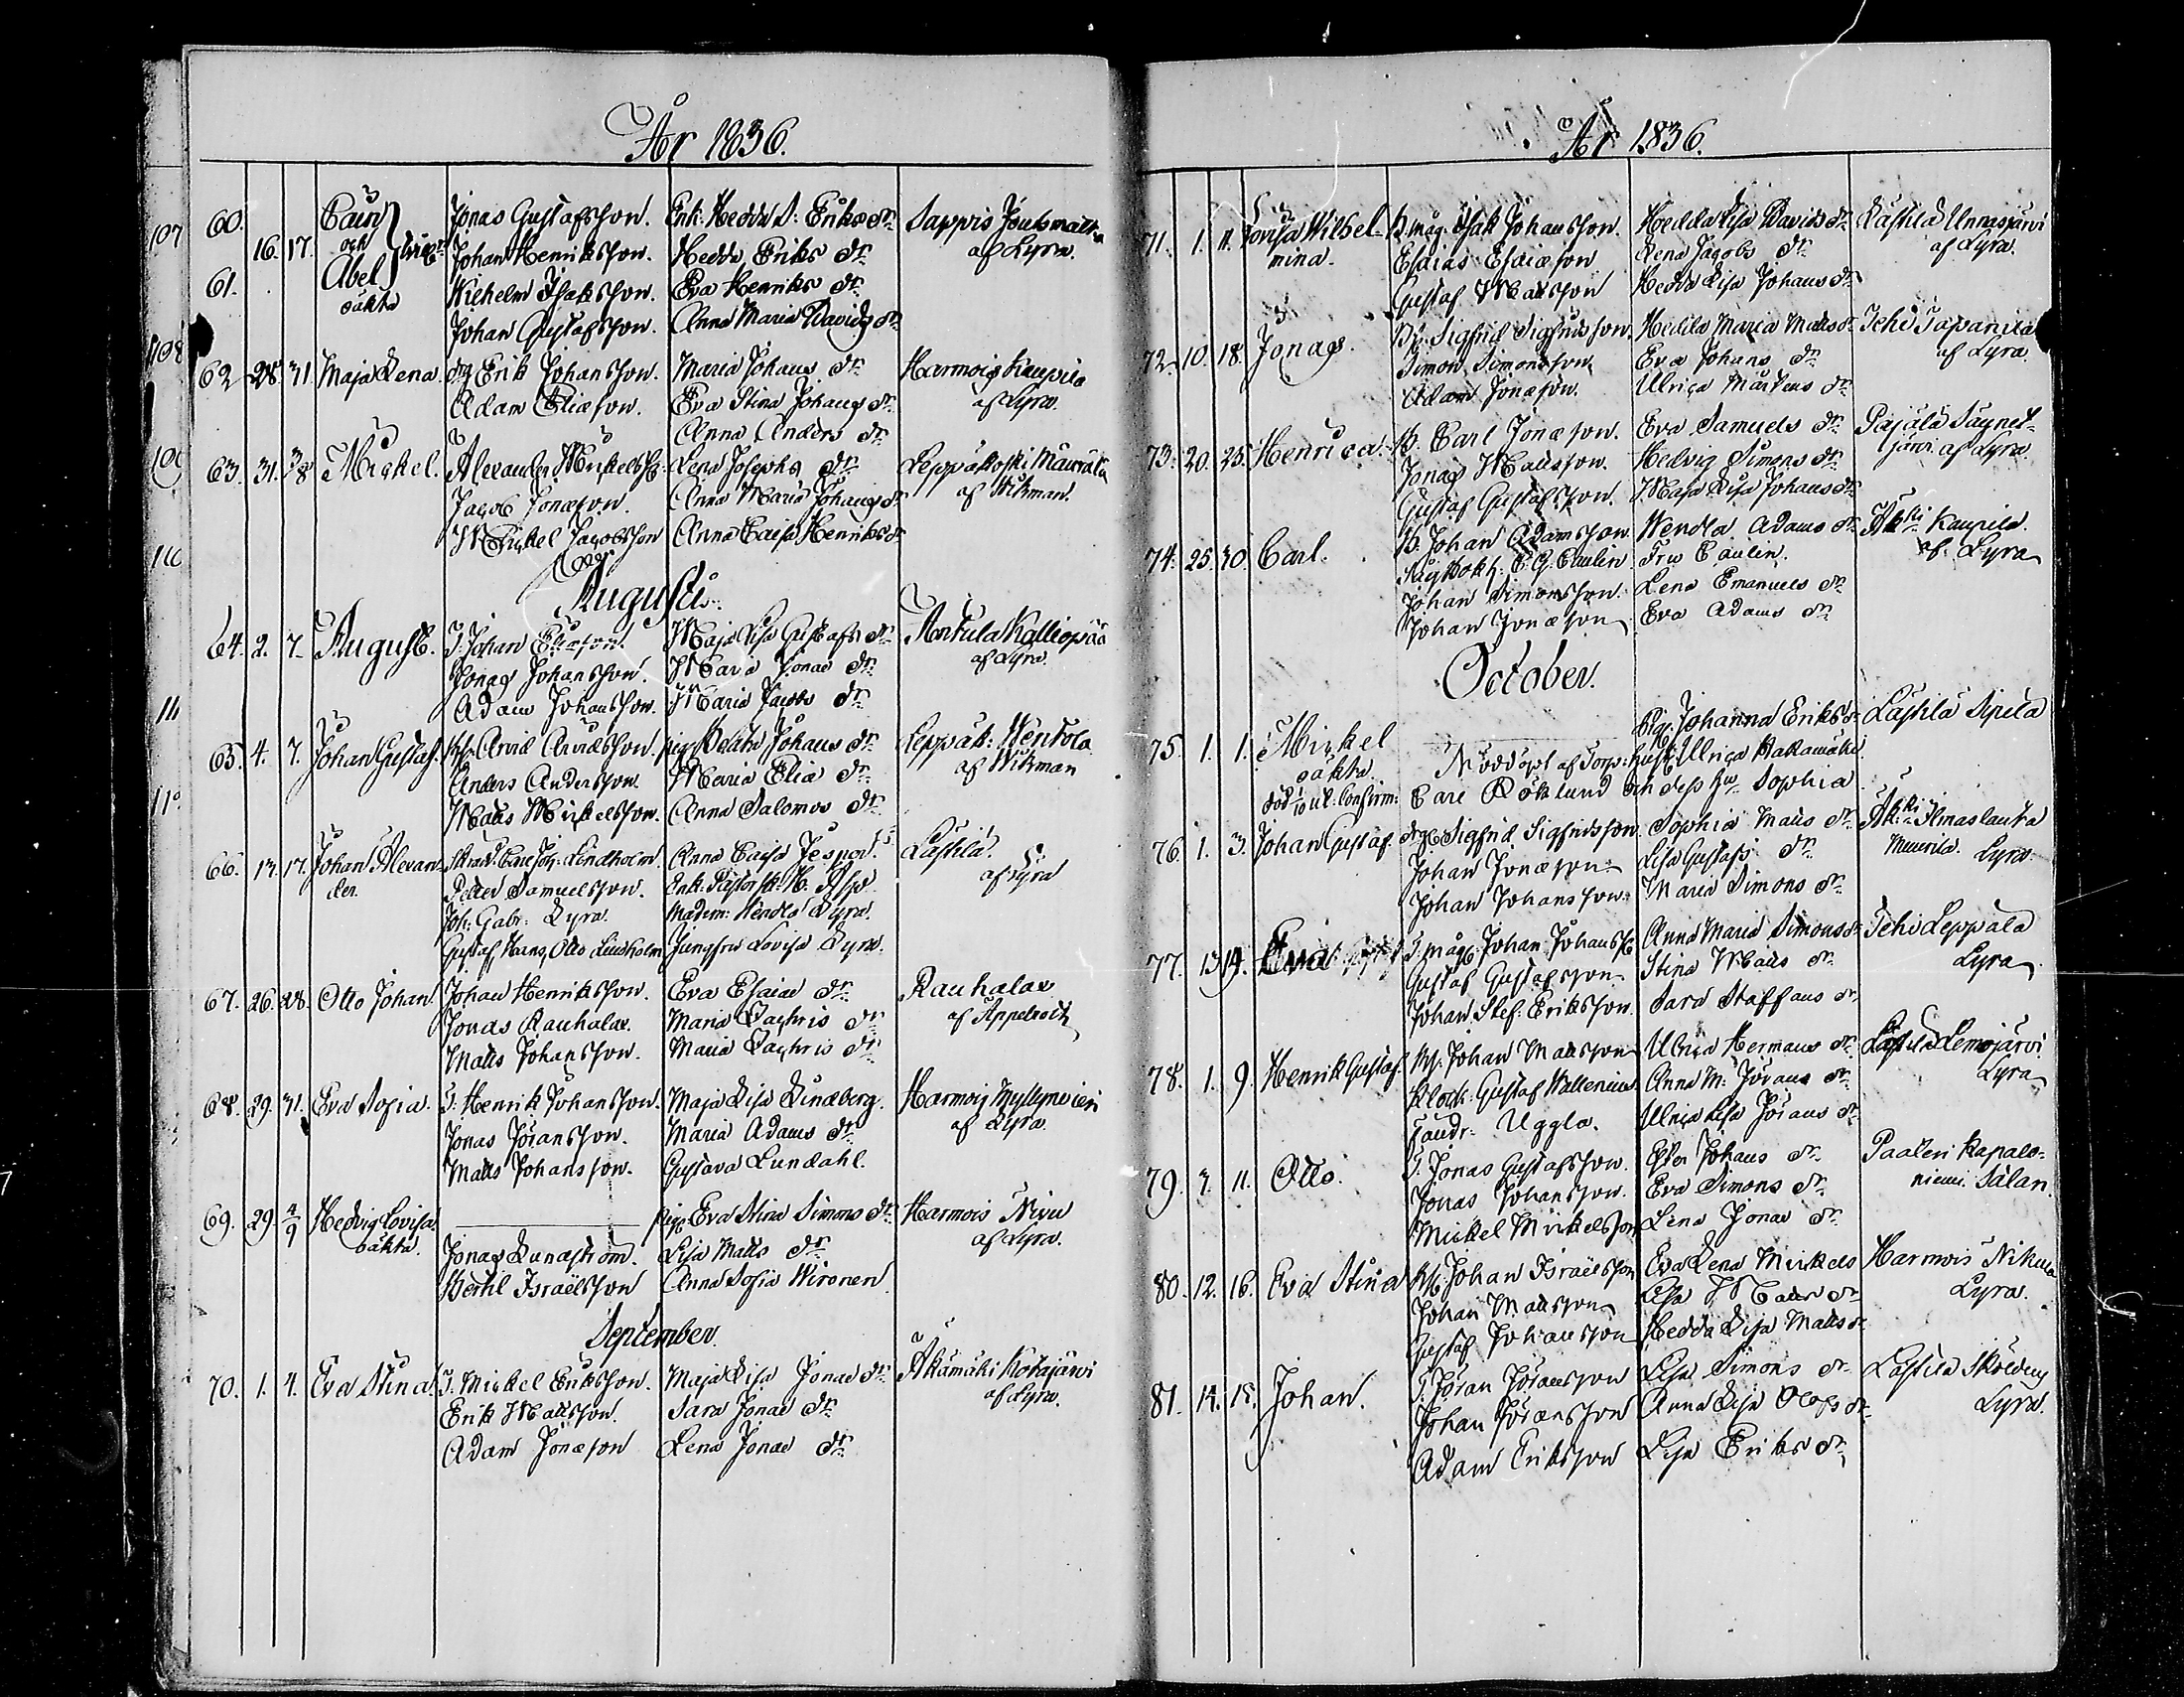 År 1836.
107 60. Cain Jonas Gustafsson. Enk: Hedda S: Eriksdr. Sappis
16. 17. och Johan Henriksson. Hedda Eriks dr. af Lyra.
61. Abel Wilhelm Isaksson. Eva Henriks dr.
oäkta Johan Gustafsson. Anna Maria Davids dr.
108
62 28. 31. Maja Lena. Erik Johansson. Maria Johans dr. Harmois Kauppila
Adam Eliæson. Eva Stina Johans dr. af Lyra.
Anna Anders dr.
63. 31. 3/8 Mickel. Alexander Lena Josephs dr. Leppäkoski Maurala
Jacob Jonæson. Anna Maria Johans dr. af Wikman.
Mickel Jacobsson Anna Caisa Henriksdr
110
Augusti.
64. 2. 7. August. T. Johan Eliæson. Maja Lisa Gustafs dr. Anttila Kalliopää
Jonas Johansson. Maria Jonæ dr. af Lyra.
Adam Johansson. Maria Jacobs dr.
111
65. 4. 7. Johan Gustaf. Arvid Arvidsson. pig. Beata Johans dr. Leppäk: Wentola
Anders Andersson. Maria Eliæ dr. af Wikman
Matts Mickelsson. Anna Salomos dr.
66. 13. 17. Johan Alexan- Lindholm. Anna Caisa Laskila.
der. Petter Samuelsson. Enk: af Lyra
Joh: Gabr: Lyra. Madem: Wendla Lyra.
Gustaf, Hans, Otto Lindholm Jungfru Lovisa Lyra.
67. 26. 28. Otto Johan. Johan Henriksson. Eva Esaiæ dr. Rauhalax
Jonas Rauhalax. Maria Zachris dr. af Appelroth
Matts Johansson. Maria Zachris dr.
68. 29. 31. Eva Sofia. T. Henrik Johansson. Maja Lisa Lindberg. Harmois
Jonas Jöransson. Maria Adams dr. af Lyra.
Matts Johansson. Gustava Lundahl.
69. 29. 4/9 Hedvig Lovisa pig. Eva Stina Simons dr. Harmois Niru
oäkta. Jonas Lundström. Lisa Matts dr. af Lyra.
Bertil Israëlsson Anna Sofia Wironen
September.
70. 1. 4. Eva Stina. T. Mickel Eriksson. Maja Lisa Jonæ dr. Akamäki Kotajärvi
Erik Mattsson. Sara Jonæ dr. af Lyra.
Adam Jonæson Lena Jonæ dr.
År 1836.
71. 1. 11. Lovisa Wilhel- B. måg. Isak Johansson. Hedda Lisa Davids dr. Laskila Unnasjärvi
mina. Esaias Esaiæson Lena Jacobs dr. af Lyra.
Gustaf Mattsson Hedda Lisa Johans dr
72. 10. 18. Jonas. Sigfrid Sigfridsson. Hedda Maria Matts dr. Ichi Tapanila
Simon Simonsson. Eva Johans dr. af Lyra.
Adam Jonæson. Ulrica Mårtens dr.
73. 20. 25. Henrica. B. Carl Jonæson. Eva Samuels dr. Pajala Säynet-
Jonas Mattsson. Hedvig Simons dr. järvi af Lyra.
Gustaf Gustafsson. Maja Lisa Johans dr.
74. 25. 30. Carl. B. Johan Adamsson. Wendla Adams dr. Kaupila
Fru Caulin. af Lyra
Johan Simonsson. Lena Emanuels dr.
Johan Jonæson Eva Adams dr.
October.
75. 1. 1. Mickel Pig. Johanna Eriks dr. Laskila Sipila
oäkta. Nöddöpt af Torp. hust. Ulrica Kakamäki.
Carl Röklund och dess hu. Sophia
76. 1. 3. Johan Gustaf. Sigfrid Sigfridsson. Sophia Matts dr. Ilmaslauta
Johan Jonæson. Lisa Gustafs dr. Lyra.
Johan Johansson. Maria Simons dr.
77. 13. 14. Eva T. måg. Johan Anna Maria Simons dr. Ichi Leppälä
Gustaf Gustafsson. Stina Matts dr. Lyra
Johan Stef: Eriksson. Sara Staffans dr.
78. 1. 9. Henrik Gustaf. Johan Mattsson Ulrica Hermans dr. Laskila Lemojärvi
Klock. Gustaf Wallenius. Anna M: Jörans dr. Lyra
Uggla. Ulrica Lisa Jörans dr.
79. 7. 11. Otto. T. Jonas Gustafsson. Johans dr. Paateri Kapalo-
Jonas Johansson. Eva Simons dr. niemi Salan.
Mickel Mickelsson Lena Jonæ dr.
80. 12. 16. Eva Stina Johan Israëlsson Eva Lena Mickels Harmois Nikula
Johan Mattsson Lisa Matts dr Lyra.
Gustaf Johansson Hedda Lisa Matts dr
81. 14. 15. Johan. T. Jöran Jöransson Lisa Simons dr. Laskila
Johan Jöransson Anna Lisa Olofs dr. Lyra.
Adam Eriksson Lisa Eriks dr.